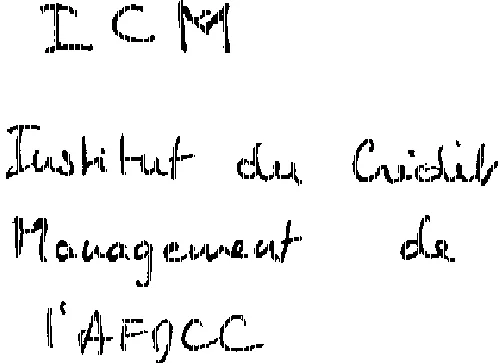 ICM
Institut du Crédit
Management de
l'AFDCC